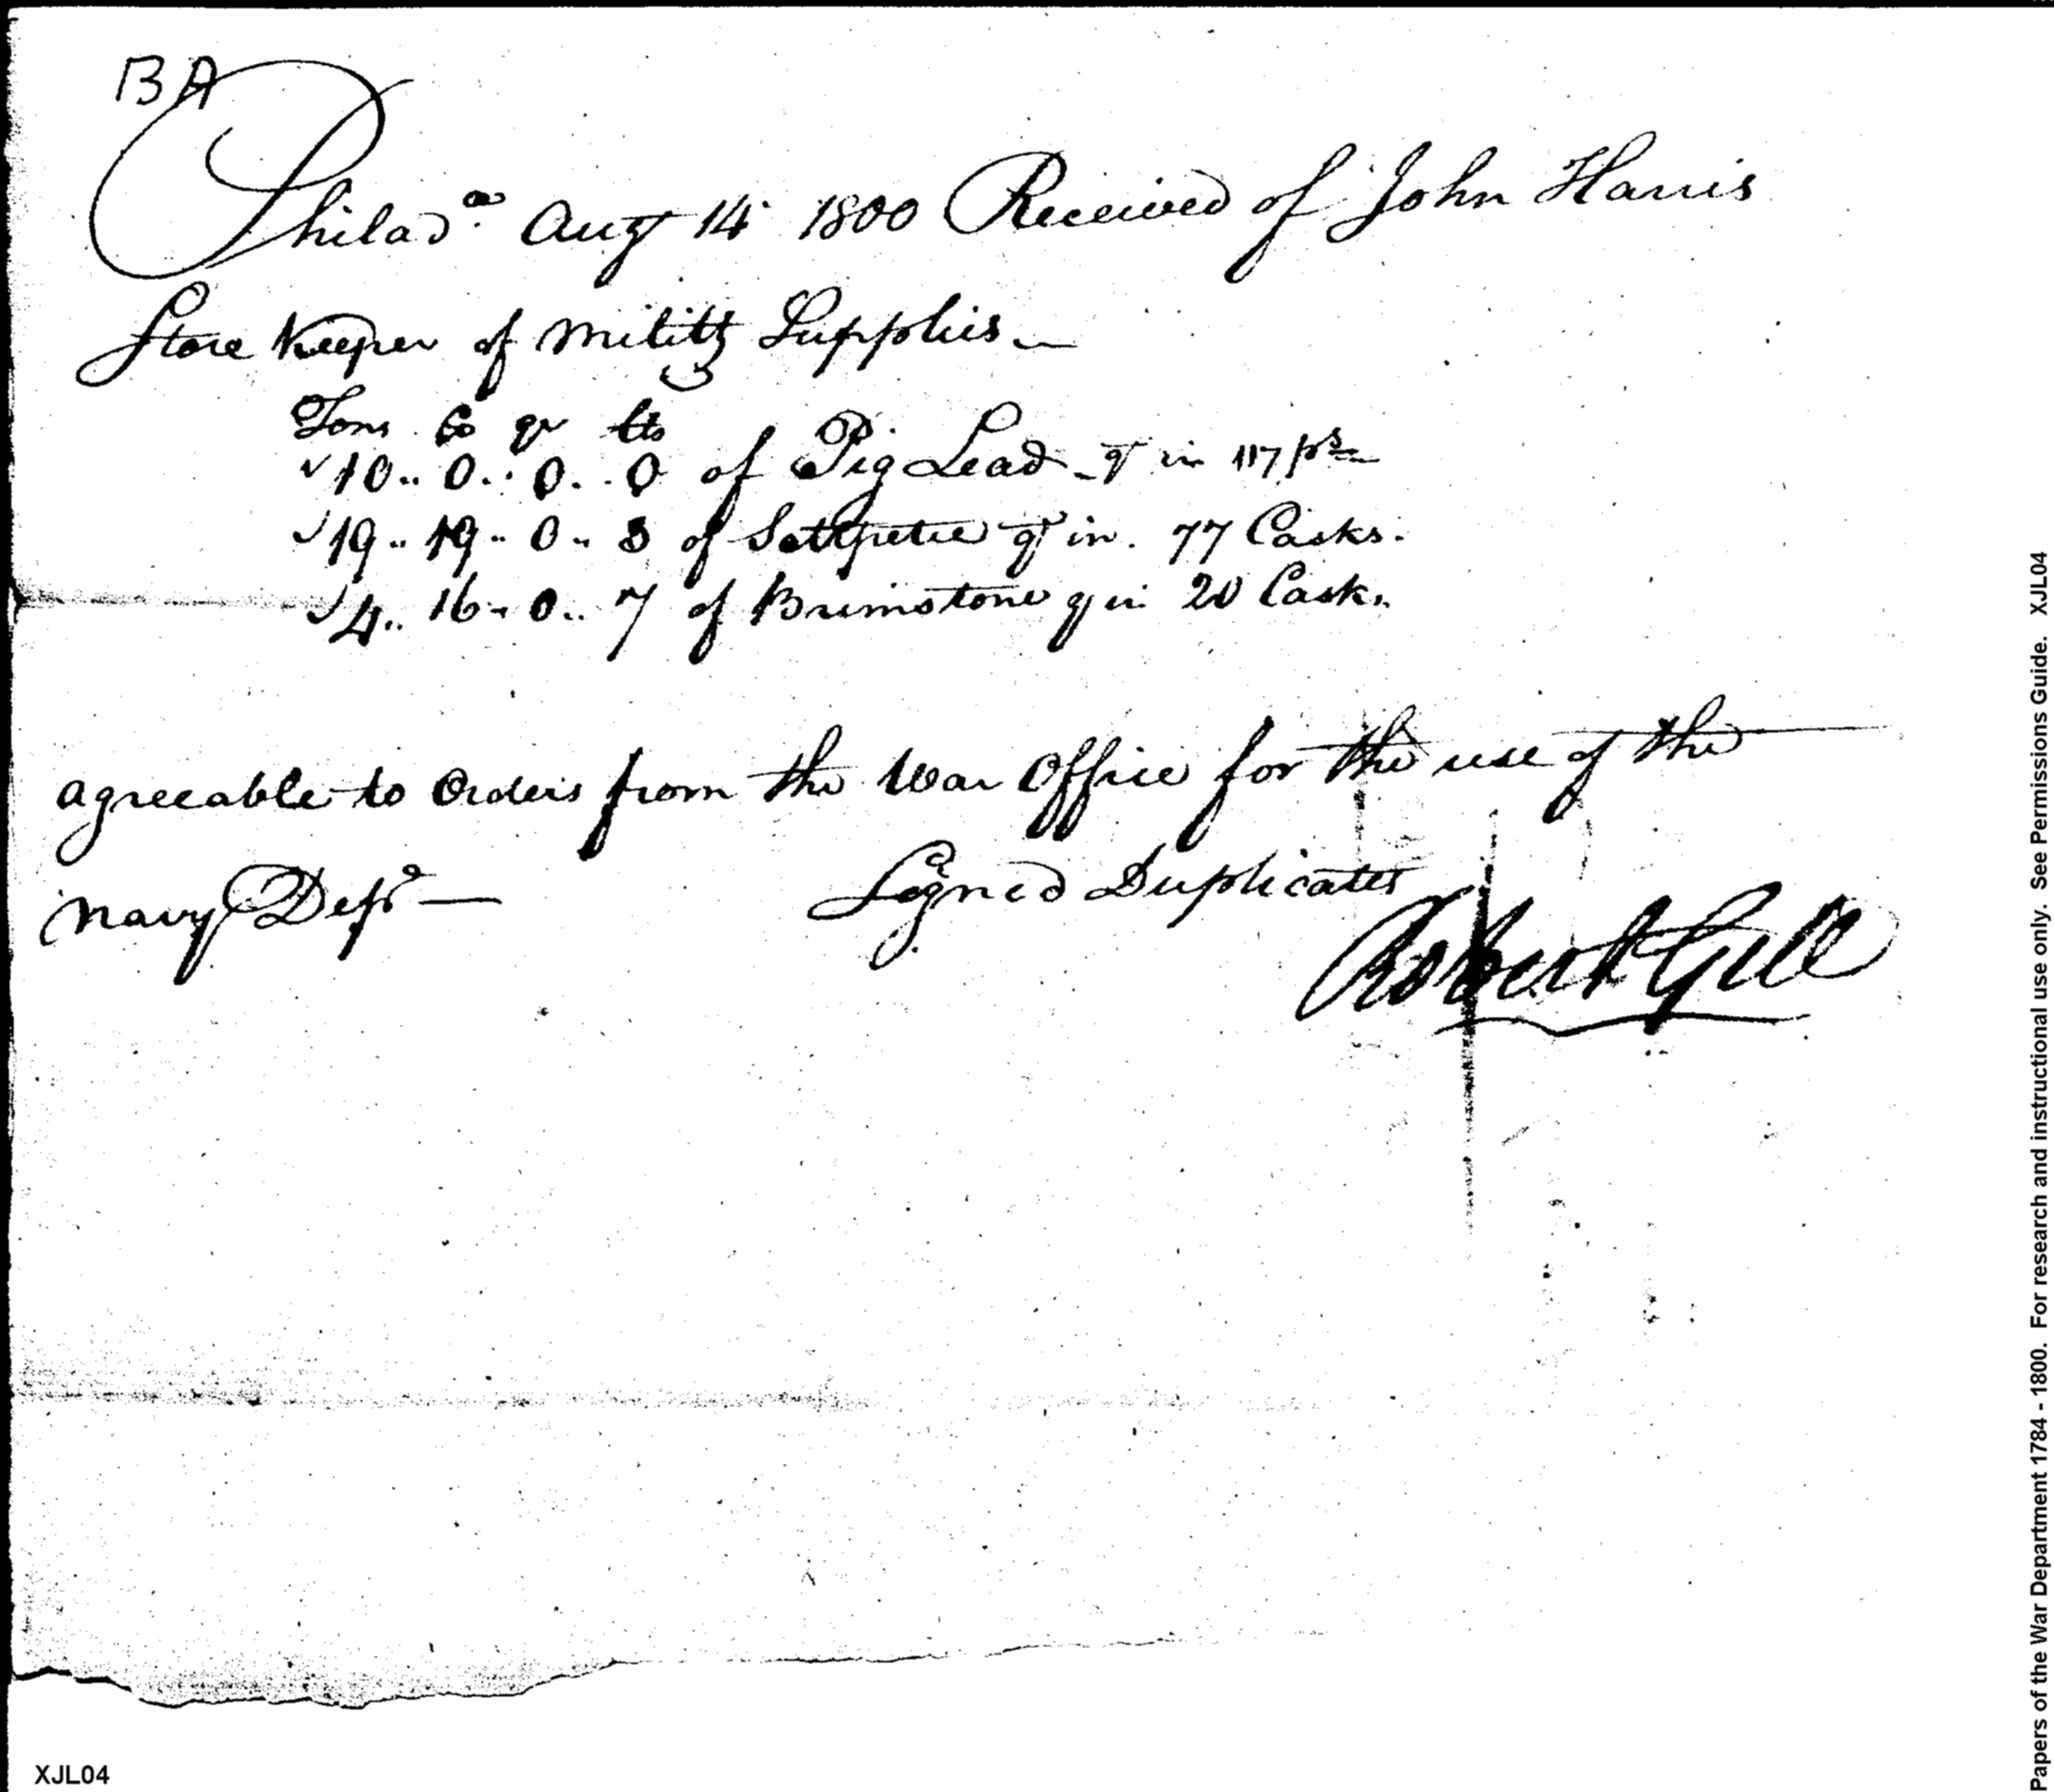 BA
Philad.ª Augt 14 1800 Received of John Harris
Store Keeper of Militty Supplies —
Tons C qr lbs
10.. 0.. 0.. 0 of Pig Lead qt in 117 ps
19.. 19.. 0.. 3 of Saltpetre qt in. 77 Casks.
4.. 16.. 0.. 7 of Brimstone qt in 20 Casks
agreeable to Orders from the War Office for the use of the
Navy Dept —
Signed Duplicates
Robert Gill
Papers of the War Department 1784 - 1800. For research and instructional use only. See Permissions Guide. XJL04
XJL04